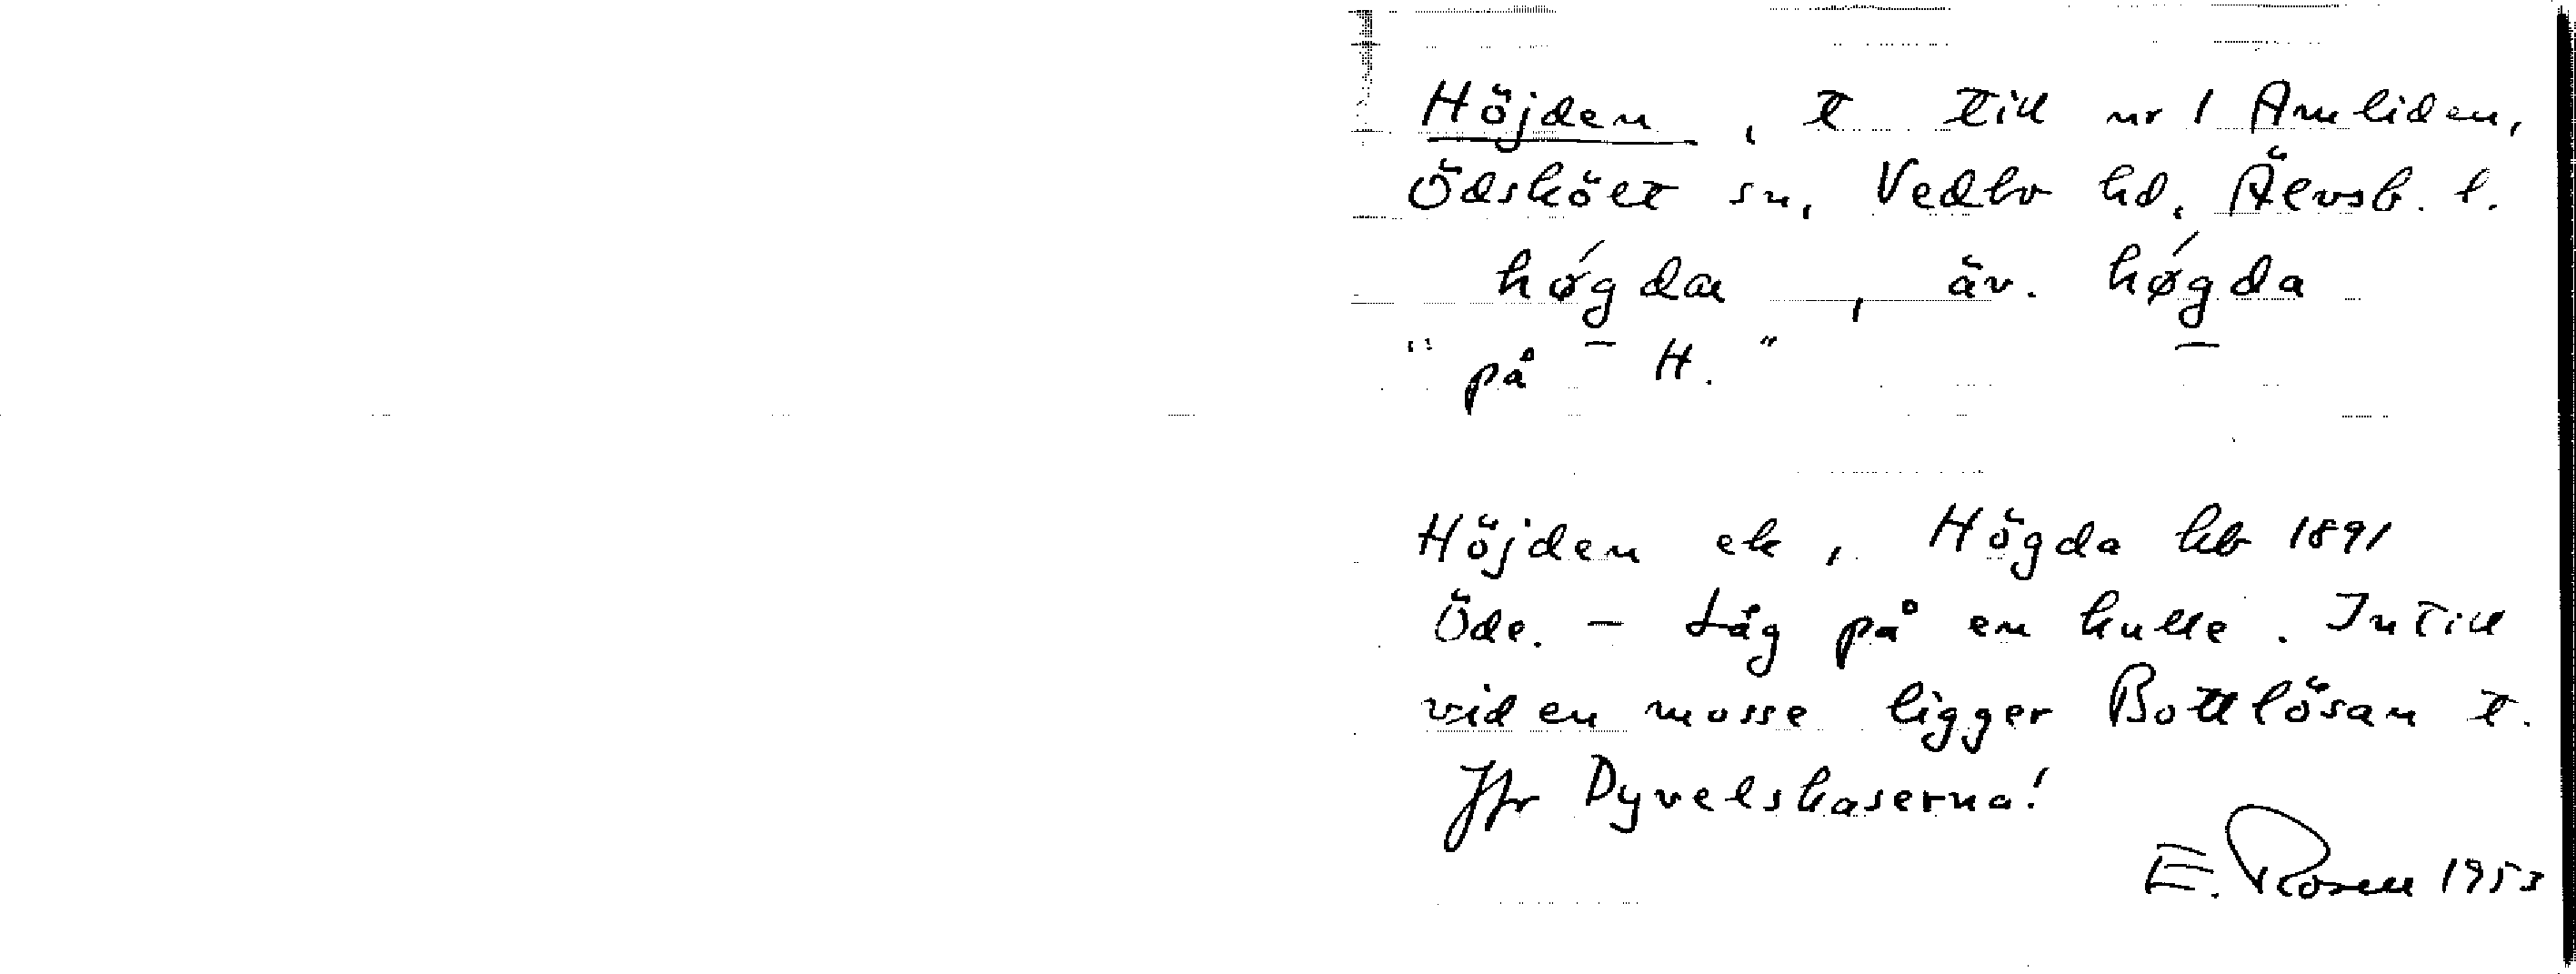 Höjden, t till nr 1 Amliden,
Ödskölt sn, Vedbo hd, Älvsb. l.
hǿgdaɴ, äv. hǿgda
"på H."
Höjden ek, Högda hb 1891
Öde. - Låg på en kulle. Intill
vid en mosse ligger Bottlösan t.
Jfr Dyvelskaserna!
E. Rosell 1953